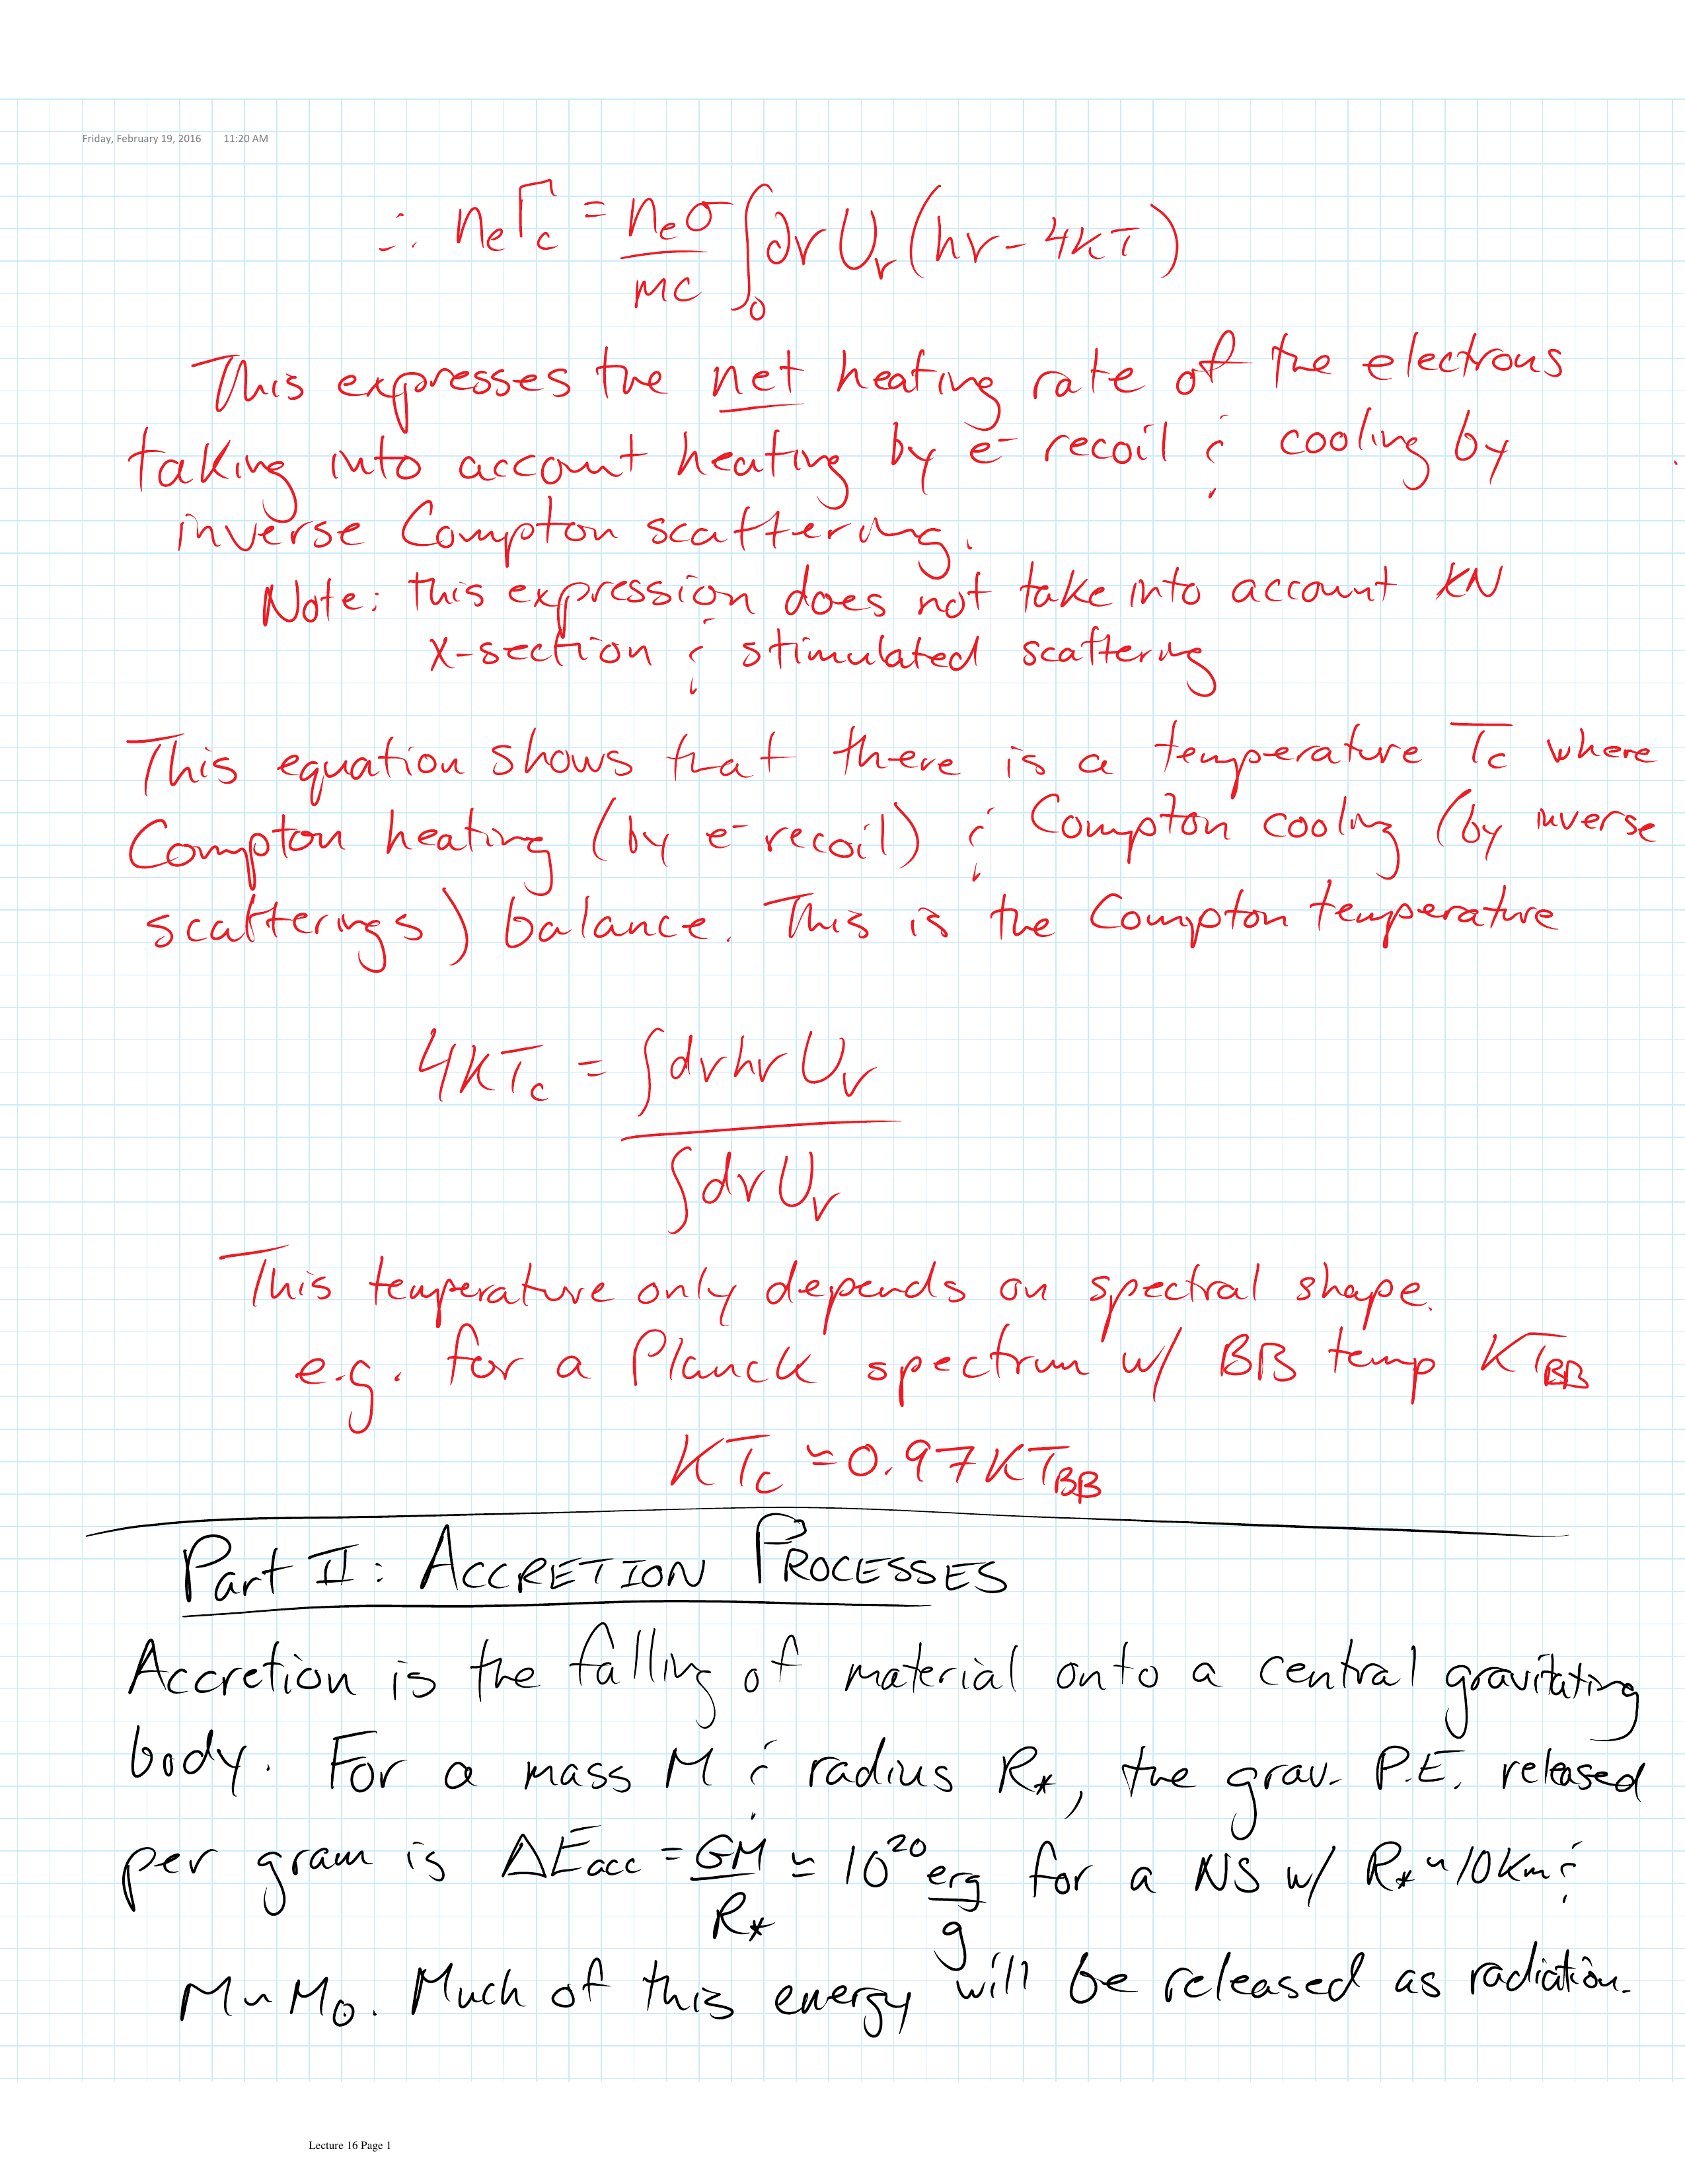 Friday, February 19, 2016 11:20 AM
∴ neΓc = neσ/mc ∫0 dν Uν (hν - 4KT)
This expresses the net heating rate of the electrons
taking into account heating by e- recoil & cooling by
inverse Compton scattering.
Note: this expression does not take into account KN
X-section & stimulated scattering
This equation shows that there is a temperature Tc where
Compton heating (by e- recoil) & Compton cooling (by inverse
scatterings) balance. This is the Compton temperature
4KTc = ∫dν hν Uν
∫dν Uν
This temperature only depends on spectral shape.
e.g. for a Planck spectrum w/ BB temp KTBB
KTc ≃ 0.97KTBB
Part II: ACCRETION PROCESSES
Accretion is the falling of material onto a central gravitating
body. For a mass M & radius R*, the grav. P.E. released
per gram is ΔEacc = GM/R* ≃ 10^20 erg/g for a NS w/ R* ~ 10 km &
M ~ M⊙. Much of this energy will be released as radiation.
Lecture 16 Page 1